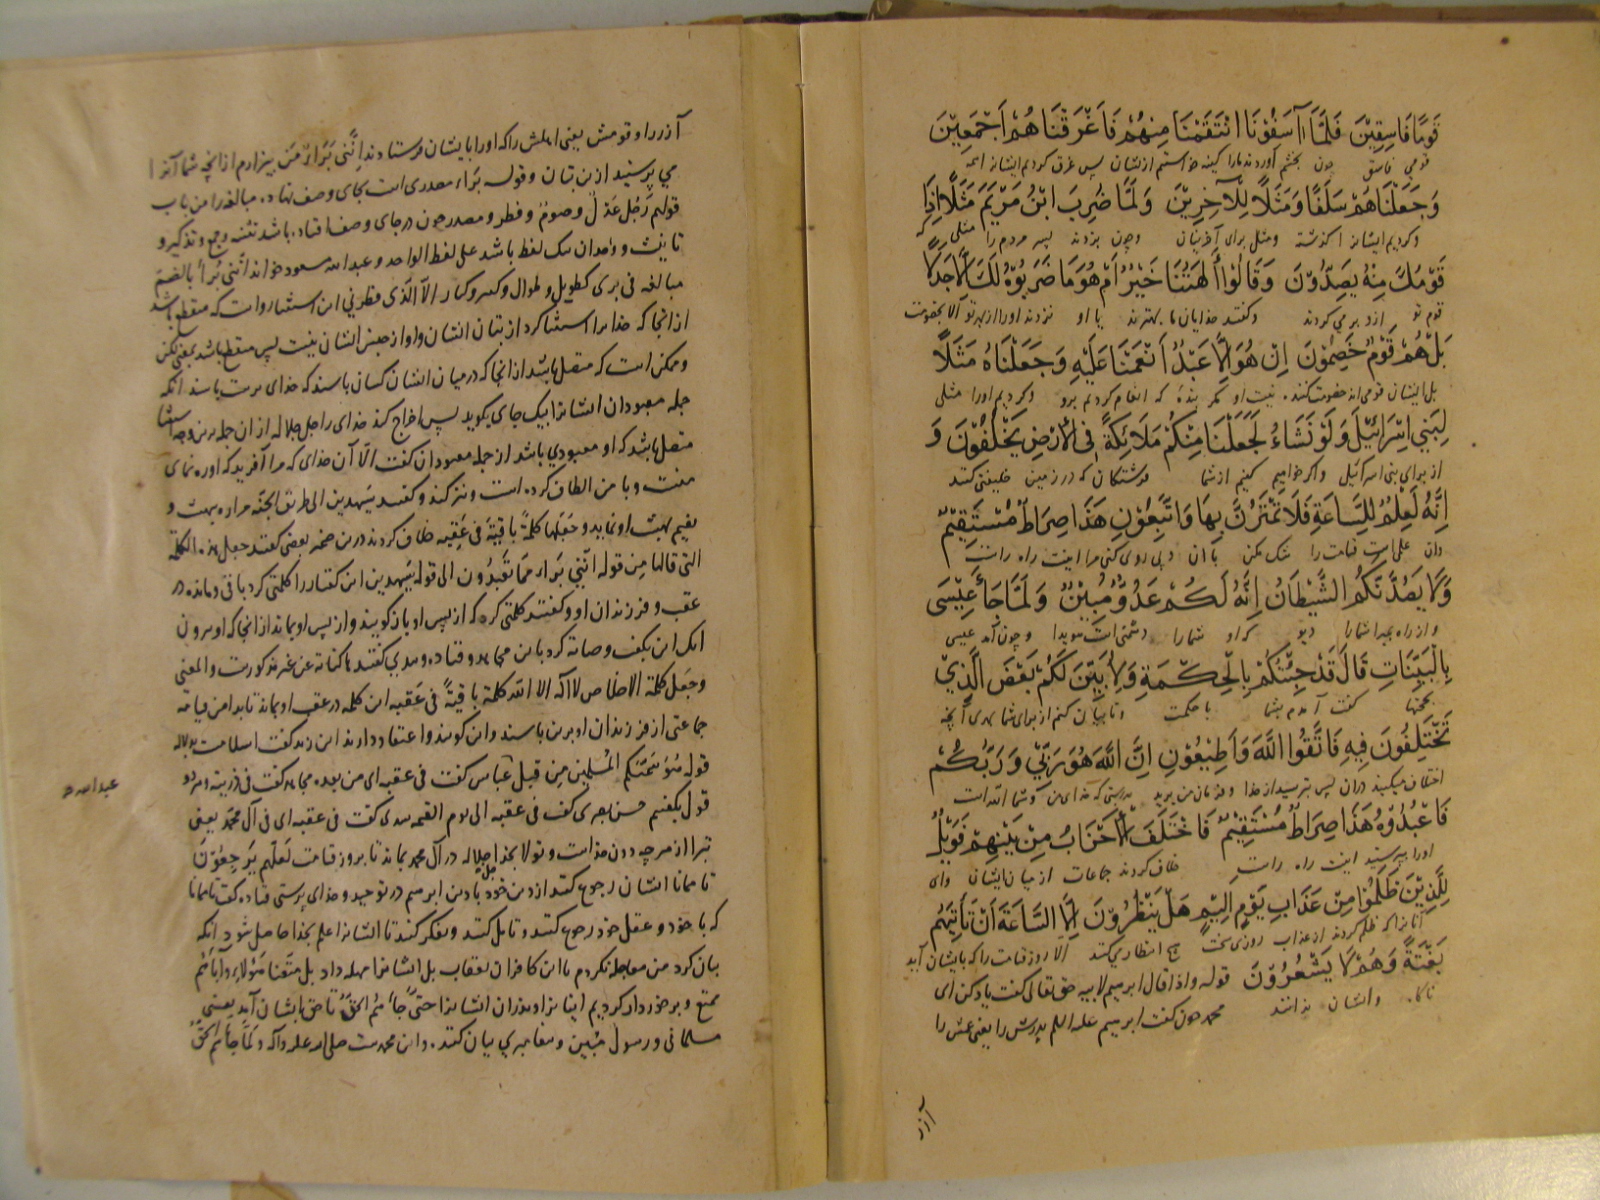 قَوْمًا فَاسِقِيْنَ فَلَمَّا آسَفُوْنَا انْتَقَمْنَا مِنْهُمْ فَاَغْرَقْنَاهُمْ اَجْمَعِيْنَ
قومی فاسق چون بخشم آوردند مارا کینه خواستیم ازیشان پس غرق کردیم ایشانرا همه
وَجَعَلْنَاهُمْ سَلَفًا وَمَثَلًا لِلْآخِرِيْنَ وَلَمَّا ضُرِبَ ابْنُ مَرْيَمَ مَثَلًا اِذَا
و کردیم ایشانرا گذشته و مثل برای آخرینان و چون بزدند پسر مردم را مثلی که
قَوْمُكَ مِنْهُ يَصِدُّوْنَ وَقَالُوْا أَآلِهَتُنَا خَيْرٌ اَمْ هُوَ مَا ضَرَبُوْهُ لَكَ اِلَّا جَدَلًا
قوم تو ازو برمی کردند و گفتند خدایان ما بهترند یا او نزدند اورا از بهر تو الا بخصومت
بَلْ هُمْ قَوْمٌ خَصِمُوْنَ اِنْ هُوَ اِلَّا عَبْدٌ اَنْعَمْنَا عَلَيْهِ وَجَعَلْنَاهُ مَثَلًا
بل ایشان قومی اند خصومت کنند. نیست او مگر بنده که انعام کردیم برو و کردیم اورا مثلی
لِبَنِي اِسْرَائِيْلَ وَلَوْ نَشَاءُ لَجَعَلْنَا مِنْكُمْ مَلَائِكَةً فِي الْاَرْضِ يَخْلُفُوْنَ وَ
از برای بنی اسرائیل و اگر خواهیم کنیم از شما فرشتگان که در زمین خلیفتی کنند
اِنَّهُ لَعِلْمٌ لِلسَّاعَةِ فَلَا تَمْتَرُنَّ بِهَا وَاتَّبِعُوْنِ هَذَا صِرَاطٌ مُسْتَقِيْمٌ
و ان علمی است قیامت را شک مکن با ان و پی روی کنی مرا اینت راه راست
وَلَا يَصُدَّنَّكُمُ الشَّيْطَانُ اِنَّهُ لَكُمْ عَدُوٌّ مُبِيْنٌ وَلَمَّا جَاءَ عِيْسَى
و از راه مبرا شمارا دیو کراو شمارا دشمنی است هویدا و چون آمد عیسی
بِالْبَيِّنَاتِ قَالَ قَدْ جِئْتُكُمْ بِالْحِكْمَةِ وَلِاُبَيِّنَ لَكُمْ بَعْضَ الَّذِيْ
بحجتها گفت آمدم بشما با حکمت و تا بیان کنم از برای شما بهری آنچه
تَخْتَلِفُوْنَ فِيْهِ فَاتَّقُوا اللَّهَ وَاَطِيْعُوْنِ اِنَّ اللَّهَ هُوَ رَبِّيْ وَرَبُّكُمْ
اختلاف میکنید دران پس بترسید از خدا و فرمان من برید بدرستی که خدای من و شما الله است
فَاعْبُدُوْهُ هَذَا صِرَاطٌ مُسْتَقِيْمٌ فَاخْتَلَفَ الْاَحْزَابُ مِنْ بَيْنِهِمْ فَوَيْلٌ
اورا بپرستید اینت راه راست خلاف کردند جماعات از میان ایشان وای
لِلَّذِيْنَ ظَلَمُوْا مِنْ عَذَابِ يَوْمٍ اَلِيْمٍ هَلْ يَنْظُرُوْنَ اِلَّا السَّاعَةَ اَنْ تَأْتِيَهُمْ
آنانرا که ظلم کردند از عذاب روزی سخت هیچ انتظار می کنند الا روز قیامت را که بایشان آید
بَغْتَةً وَهُمْ لَا يَشْعُرُوْنَ قوله و اذ قال ابرهیم لابیه حق تعالی گفت یاد کن ای
ناگاه و ایشان ندانند محمد چون گفت ابرهیم علیه السلم پدرش را یعنی عمش را
آزر
آزر را و قومش یعنی اهلش را که اورا بایشان فرستادند اِنَّنِی بَرَاءٌ مِمَّا من بیزارم از آنچه شما آنرا
می پرستید ازین بتان و قوله بَراء مصدری است بجای وصف نهاده مبالغه را من باب
قولهم رَجُل عَدْل وصوم و فطر و مصدر چون در جای وصف افتاده باشد تثنیه و جمع و تذکیر و
تانیث و وحدان یک لفظ باشد علی لفظ الواحد و عبد الله مسعود خواند انّنی بُراءٌ بالضم
مبالغه فی بری کطویل و طوال و کبیر و کبار الّا الّذی فطرنی این استثنا رواست که منقطع باشد
از آنجا که خدایرا استثنا کرد از بتان ایشان و او از جنس ایشان نیست پس منقطع باشد بمعنی لکن
و ممکن است که متصل باشد از آنجا که در میان ایشان کسان باشند که خدای پرست باشند آنکه
جمله معبودان ایشانرا بیک جای بگوید پس اخراج کند خدای را جل جلاله از ان جمله برین وجه استثنا
متصل باشد که او معبودی باشد از جمله معبودان گفت الّا آن خدای که مرا آفرید که اوره نمای
منست و با من الطاف کرده است و نیز کند و گفتند سَیَهدین الی طریق الجنّه مراره بهشت و
نعیم بهشت او نماید و جَعَلَها کلمةً باقیةً فی عَقِبِه خلاف کردند درین ضمیر بعضی گفتند جعل هذه الکلمة
التی قالها مِن قوله انّنی بَراء ممّا تَعْبدُون الی قوله سَیَهدین این گفتار را کلمتی کرد باقی و مانده در
عقب و فرزندان او و گفتند کلمتی کرد که از پس او باز گویند و از پس او بماند از آنجا که او برون
وجعل کلمة الاخلاص لا اله الا الله کلمة باقیةً فی عَقِبه این کلمه در عقب او بماند تا بدامن قیامت
جماعتی از فرزندان او برین باشند و این گویند و اعتقاد دارند ابن زید گفت اسلامست
قوله هُوَ سَمّیٰکُم المُسْلِمین مِن قبل عَبّاس گفت فی عقبه ای من بعده مجاهد گفت فی ذریته
عبدالله
قول بگفتیم حسن بصری گفت فی عقبه الی یوم القیمه سدی گفت فی عقبه ای فی آل محمّد یعنی
تبرا از هرچه دون خداست و تولا بخدا جل جلاله در آل محمد بماند تا بروز قیامت لَعَلّهم یَرجِعُوْنَ
تا همانا ایشان رجوع کنند از دین خود با دین ابرهیم در توحید و خدای پرستی قتاده گفت تا همانا
که با خود و عقل خود رجوع کنند و تامل کنند و تفکر کنند تا ایشانرا علم بخدا حاصل شود آنکه
بیان کرد من معاجله نکردم با این کافران بعقاب بل ایشانرا مهله داد بل متّعنا هَؤلاءِ و آباءَهُم
ممتع و برخوردار کردیم اینانرا و پدران ایشانرا حتّی جاءَهُم الحَقُّ تا حق بایشان آید یعنی
مسلمانی و رسول مُبین و پیغامبری بیان کننده و این محمدست صلی الله علیه و آله و لَمّا جاءَهُم الحَقُّ